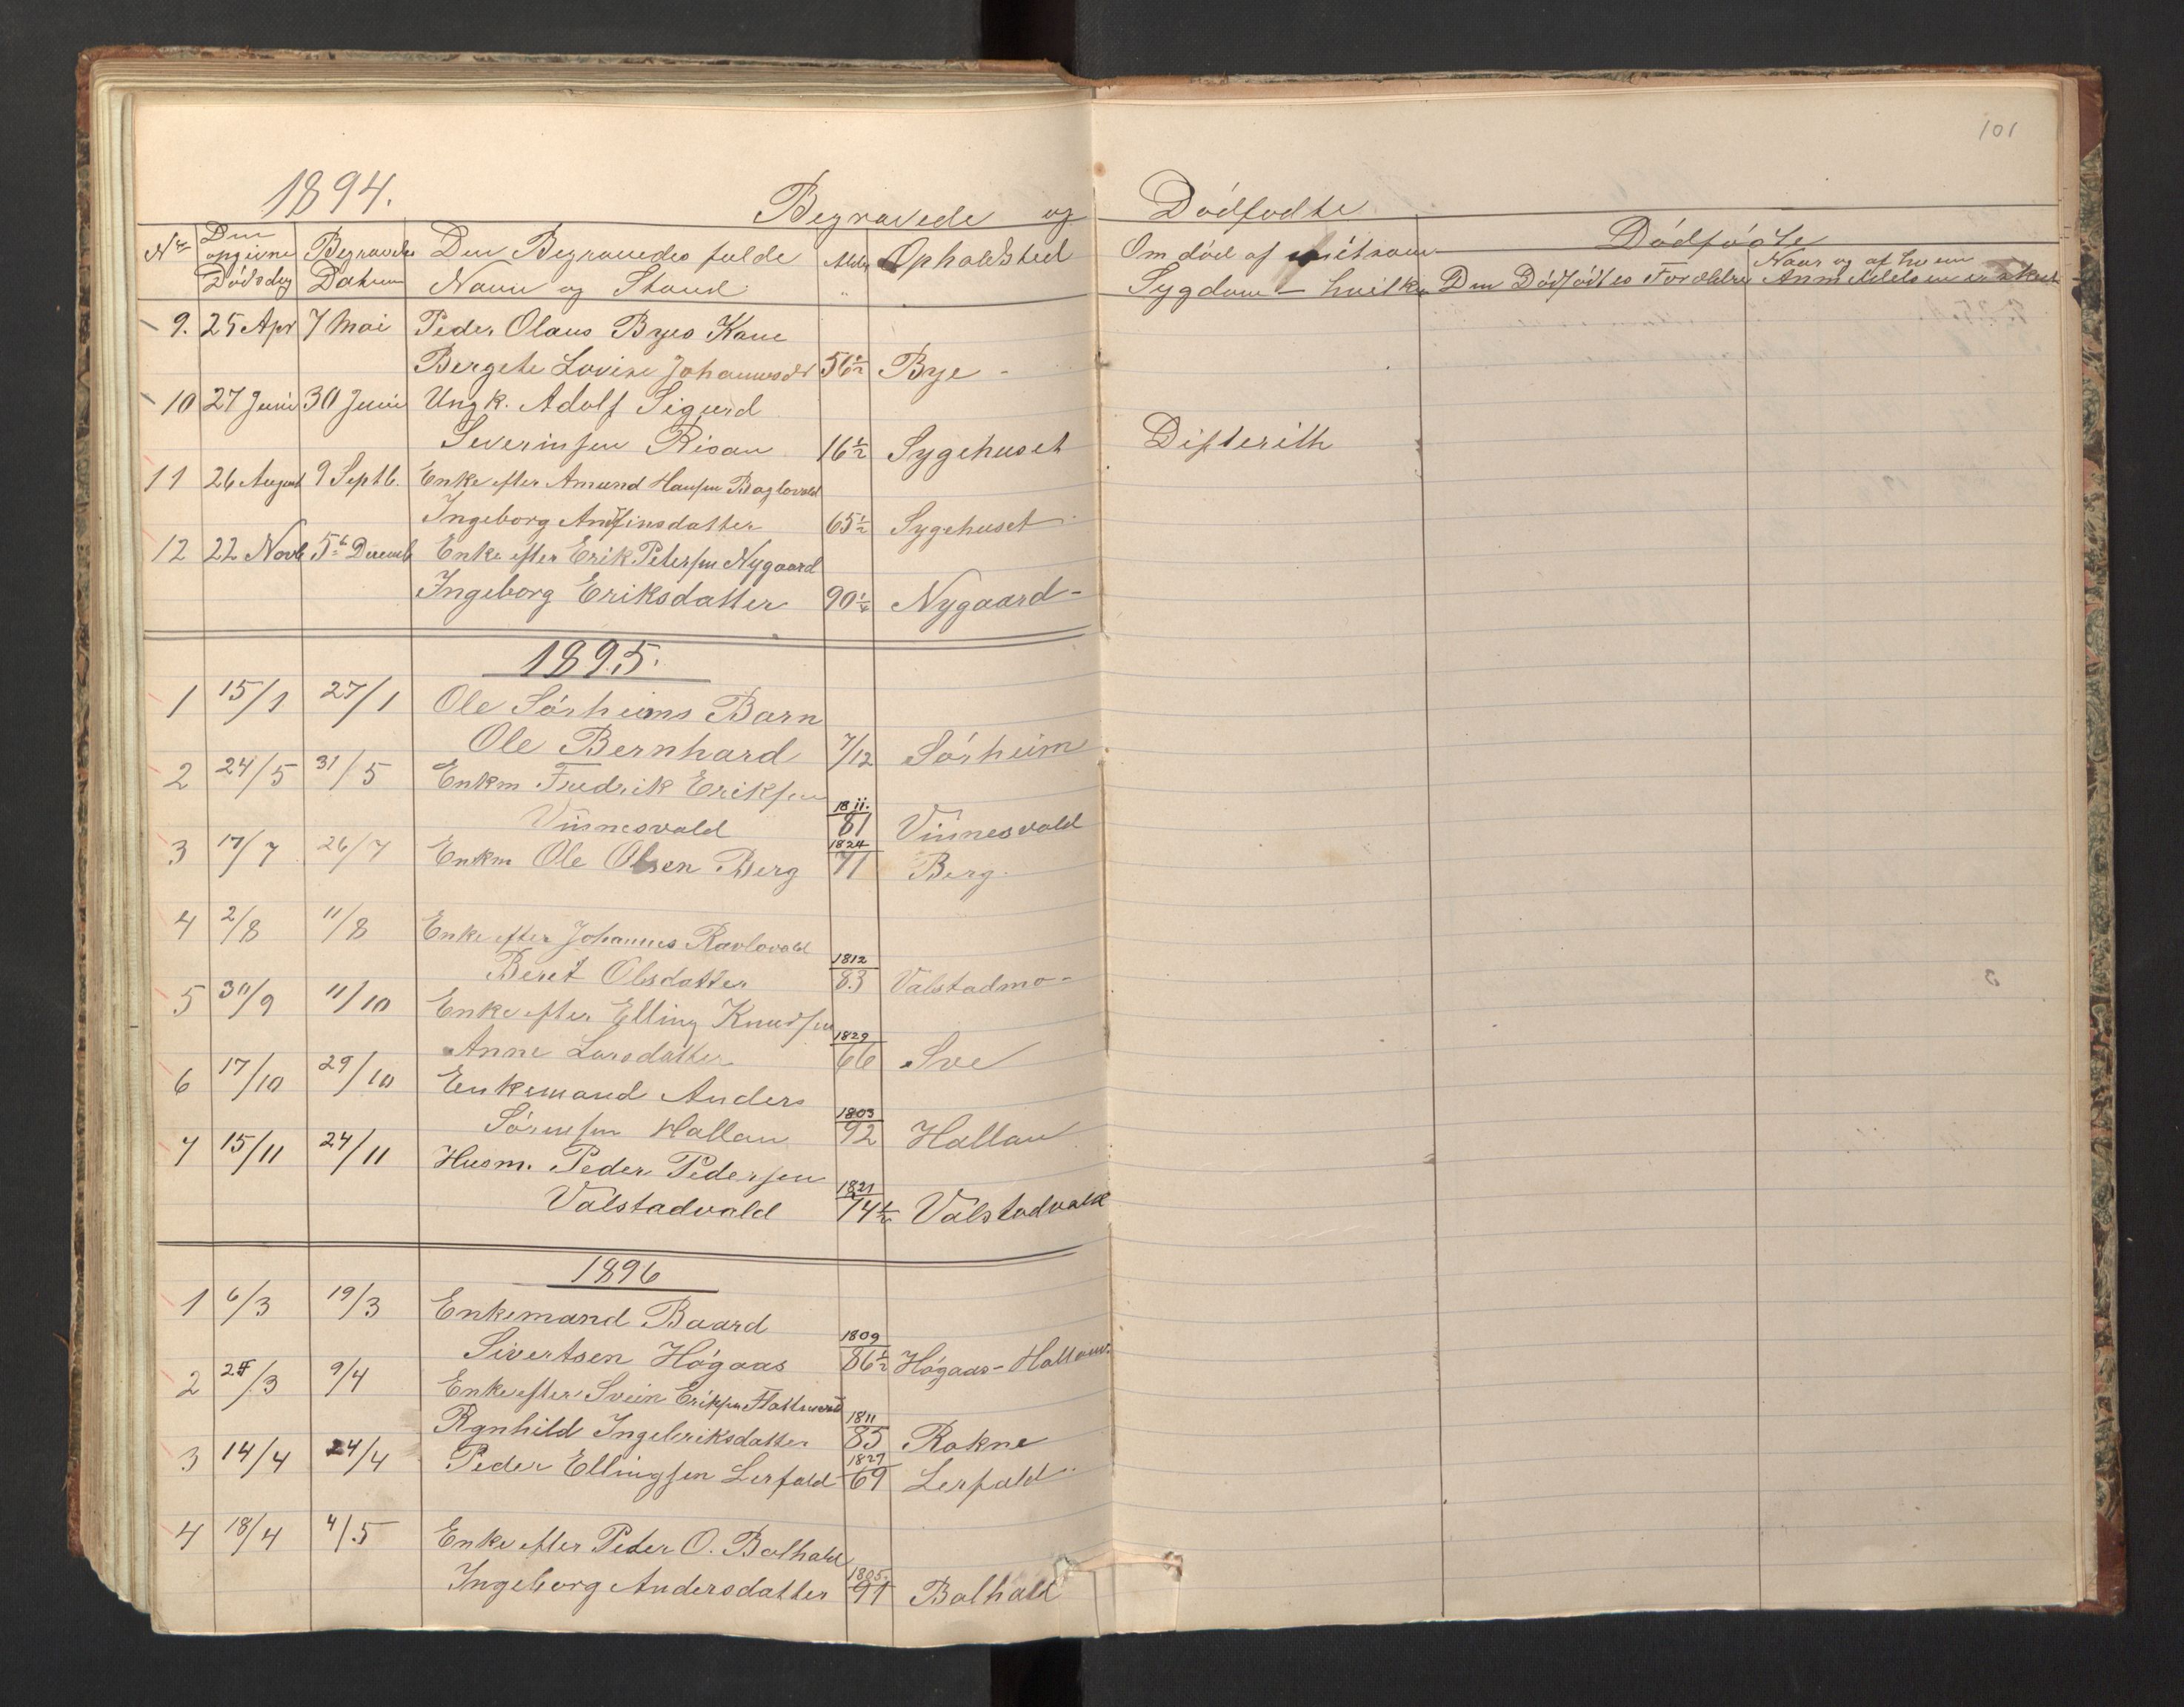 101
1894. Begravede og Dödfödte
Nr Den opgivne Dödsdag Begravelses Datum Den Begravedes fulde Navn og Stand Alder Opholdsted Om död af smitsom Sygdom – hvilken Dödfödte Den Dödfödtes Forældre Naar og af hvem Anmeldelsen er skeet
9. 25 Apr 7 Mai Peder Olaus Byes Kone
Bergete Lovise Johannesdr 56½ Bye -
10 27 Juni 30 Juni Ungk. Adolf Sigurd
Severinsen Risan 16½ Sygehuset Difterith
11 26 August 9 Septb. Enke efter Amund Hansen
Ingeborg Arnfinsdatter 65½ Sygehuset
12 22 Novb 5te Decemb Enke efter Erik Petersen Nygaard
Ingeborg Eriksdatter 90¼ Nygaard -
1895.
1 15/1 27/1 Ole Sörheims Barn
Ole Bernhard 7/12 Sörheim
2 24/5 31/5 Enkm Fredrik Eriksen
Vinnesvald 1811. 81 Vinnesvald
3 17/7 26/7 Enkm Ole Olsen Berg 1824 71 Berg.
4 2/8 11/8 Enke efter Johannes Ravlovald
Beret Olsdatter 1812 83 Valstadmo -
5 30/9 11/10 Enke efter Elling Knudsen
Anne Larsdatter 1829 66 Sve
6 17/10 29/10 Enkemand Anders
Sörensen Hallan 1803 92 Hallan
7 15/11 24/11 Husm. Peder Pedersen
Valstadvald 1821 74½ Valstadvald
1896
1 6/3 19/3 Enkemand Baard
Sivertsen Högaas 1809 86½ Högaas - Hallan
2 25/3 9/4 Enke efter Svein Eriksen
Rgnhild Ingebriksdatter 1811 85 Rokne
3 14/4 24/4 Peder Ellingsen Lerfald 1827 69 Lerfald
4 18/4 4/5 Enke efter Peder O. Balhald
Ingeborg Andersdatter 1805. 91 Balhald